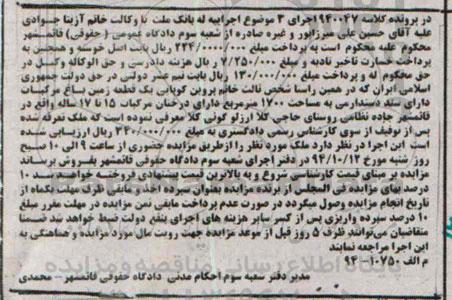 در پرونده کلاسه ۹۴۰۰۴۷ اجرای ۳ موضوع اجراییه له بانک ملت با وکالت خانم آزیتا جوادی
علیه آقای حسین علی میرزاپور و غیره صادره از شعبه سوم دادگاه عمومی ( حقوقی ) قائمشهر
محکوم علیه محکوم است به پرداخت مبلغ ۲۲۴/۰۰۰/۰۰۰ ریال بابت اصل خواسته و همچنین به
پرداخت خسارت تاخیر تادیه و مبلغ ۷/۲۵۰/۰۰۰ ریال هزینه دادرسی و حق الوکاله وکیل در
حق محکوم له و پرداخت مبلغ ۱۳/۰۰۰/۰۰۰ ریال بابت نیم عشر دولتی در حق دولت جمهوری
اسلامی ایران که در همین راستا شخص ثالث خانم پروین کوپایی یک قطعه زمین باغ مرکبات
دارای سند دستدارمی به مساحت ۱۷۰۰ مترمربع دارای درختان مرکبات ۱۵ تا ۱۷ ساله واقع در
قائمشهر جاده نظامی روستای حاجی کلا ارزلو کوتی کلا معرفی نموده است که ملک تعرفه شده
پس از توقیف از سوی کارشناس رسمی دادگستری به مبلغ ۳۴۰/۰۰۰/۰۰۰ ریال ارزیابی شده
است این اجرا در نظر دارد ملک مورد نظر را ازطریق مزایده حضوری از ساعت ۹ الی ۱۰ صبح
روز شنبه مورخ ۹۴/۱۰/۱۲ در دفتر اجرای شعبه سوم دادگاه حقوقی قائمشهر بفروش برساند
مزایده بر مبنای قیمت کارشناسی شروع و به بالاترین قیمت پیشنهادی فروخته خواهد شد ۱۰
درصد بهای مزایده فی المجلس از برنده مزایده بعنوان سپرده اخذ و مابقی ظرف مهلت یکماه از
تاریخ انجام مزایده وصول میگردد در صورت عدم پرداخت مابقی ثمن مزایده در مهلت مقرر مبلغ
۱۰ درصد سپرده واریزی پس از کسر سایر هزینه های اجرای بنفع دولت ضبط خواهد شد ضمنا
متقاضیان می‌توانند ظرف ۵ روز قبل از موعد مزایده جهت رویت سال مورد مزایده و هماهنگی به
این اجرا مراجعه نمایند
م الف ۱۰۷۵۰-۹۴
مدیر دفتر شعبه سوم احکام مدنی دادگاه حقوقی قائمشهر - محمدی
پایگاه اطلاع رسانی مناقصه و مزایده